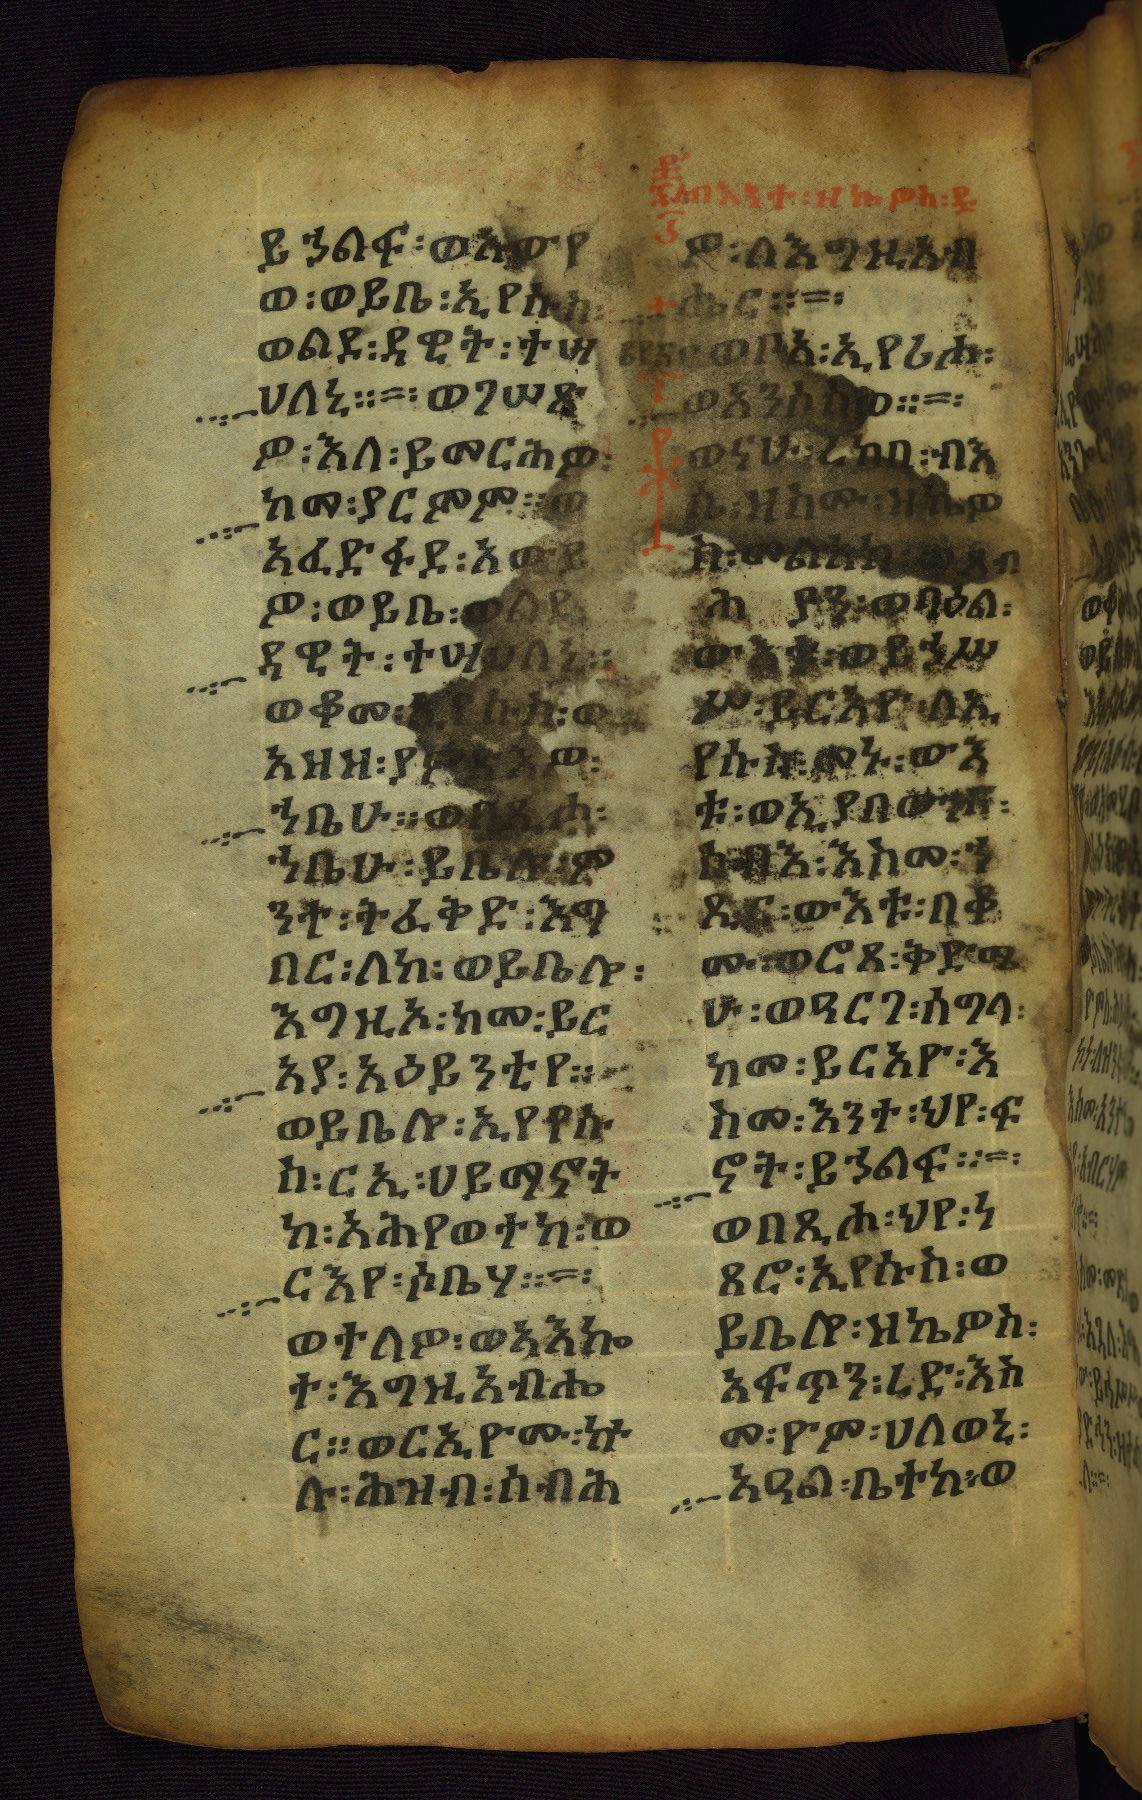 በእንተ፡ዘኬዎስ፡
ይኀልፍ፡ወአውየ
ወ፡ወይቤ፡ኢየሱስ፡
ወልደ፡ዳዊት፡ተሣ
ሀለኒ።=፡ወገሠጽ
ዎ፡እለ፡ይመርሕዎ፡
ከመ፡ያርምም።ወ
አፈድፋደ፡አውየ
ወ፡ወይቤ፡ወልደ
ዳዊት፡ተሣሀለኒ።
ወቆመ፡ኢየሱስ፡ወ
አዘዘ፡ያምጽእዎ፡
ኀቤሁ።ወበጺሖ፡
ኀቤሁ፡ይቤሎ፡ም
ንተ፡ትፈቅድ፡እግ
በር፡ለከ፡ወይቤሎ፡
እግዚኦ፡ከመ፡ይር
አያ፡አዕይንቲየ።
ወይቤሎ፡ኢየሱ
ስ፡ርኢ፡ሀይማኖት
ከ፡አሕየወተከ፡ወ
ርእየ፡ሶቤሃ።=፡
ወተለዎ፡ወአእኰ
ተ፡እግዚአብሔ
ር።ወርኢዮሙ፡ኵ
ሉ፡ሕዝብ፡ሰብሕ
ዎ፡ለእግዚአብ
ሔር።=፡
ወቦአ፡ኢያሪሖ፡
ወአንሶሰወ።=፡
ወናሁ፡ረከበ፡ብእ
ሴ፡ዘስሙ፡ዘኬዎ
ስ፡መልአከ፡ወጸብ
ሐ ያን፡ወባዕል፡
ውእቱ፡ወይኀሥ
ሥ፡ይርአዮ፡ለኢ
የሱስ፡መኑ፡ውእ
ቱ፡ወኢያበውሕዎ፡
ሰብእ፡እስመ፡ኀ
ጺር፡ውእቱ፡በቆ
ሙ።ወሮጸ፡ቅድሜ
ሁ፡ወዓርገ፡ሰግላ፡
ከመ፡ይርአዮ፡እ
ስመ፡እንተ፡ህየ፡ፍ
ኖት፡ይኀልፍ።=፡
ወበጺሖ፡ህየ፡ነ
ጸሮ፡ኢየሱስ፡ወ
ይቤሎ፡ዘኬዎስ፡
አፍጥን፡ረድ፡እስ
መ፡ዮም፡ሀለወኒ፡
እዓል፡ቤተከ።ወ